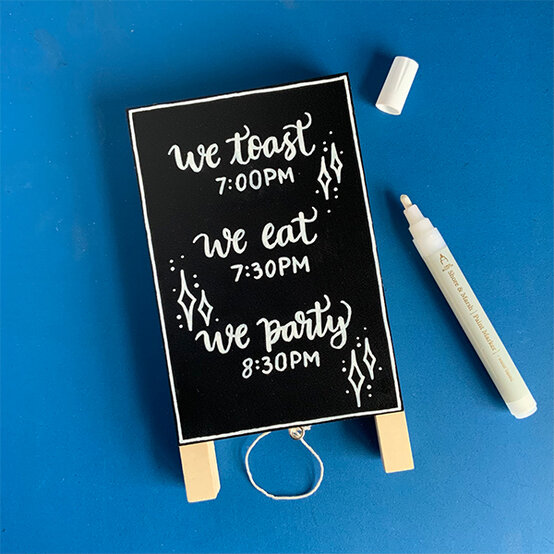 we toast
7:00PM
we eat
7:30PM
we party
8:30PM
Shore & Marsh | Paint Marker